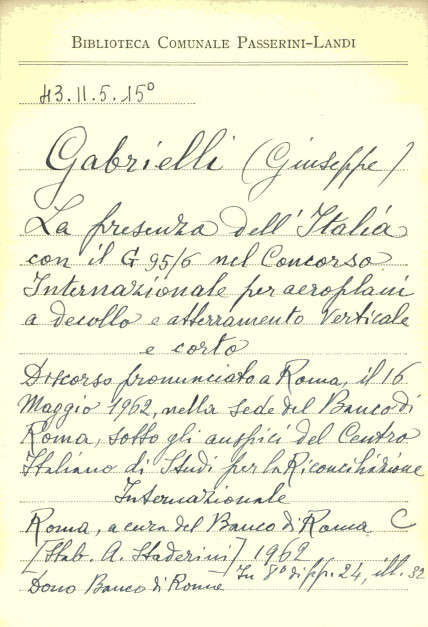 BIBLIOTECA COMUNALE PASSERINI-LANDI
43.II.5.15°
Gabrielli (Giuseppe)
La presenza dell'Italia
con il G 95/6 nel Concorso
Internazionale per aeroplani
a decollo e atterramento verticale
e corto
Discorso pronunciato a Roma, il 16
Maggio 1962, nella sede del Banco di
Roma, sotto gli auspici del Centro
Italiano di Studi per la Riconciliazione
Internazionale
Roma, a cura del Banco di Roma C
[Stab. A. Staderini] 1962
In 8° di pp. 24, ill. 32
Dono Banco di Roma